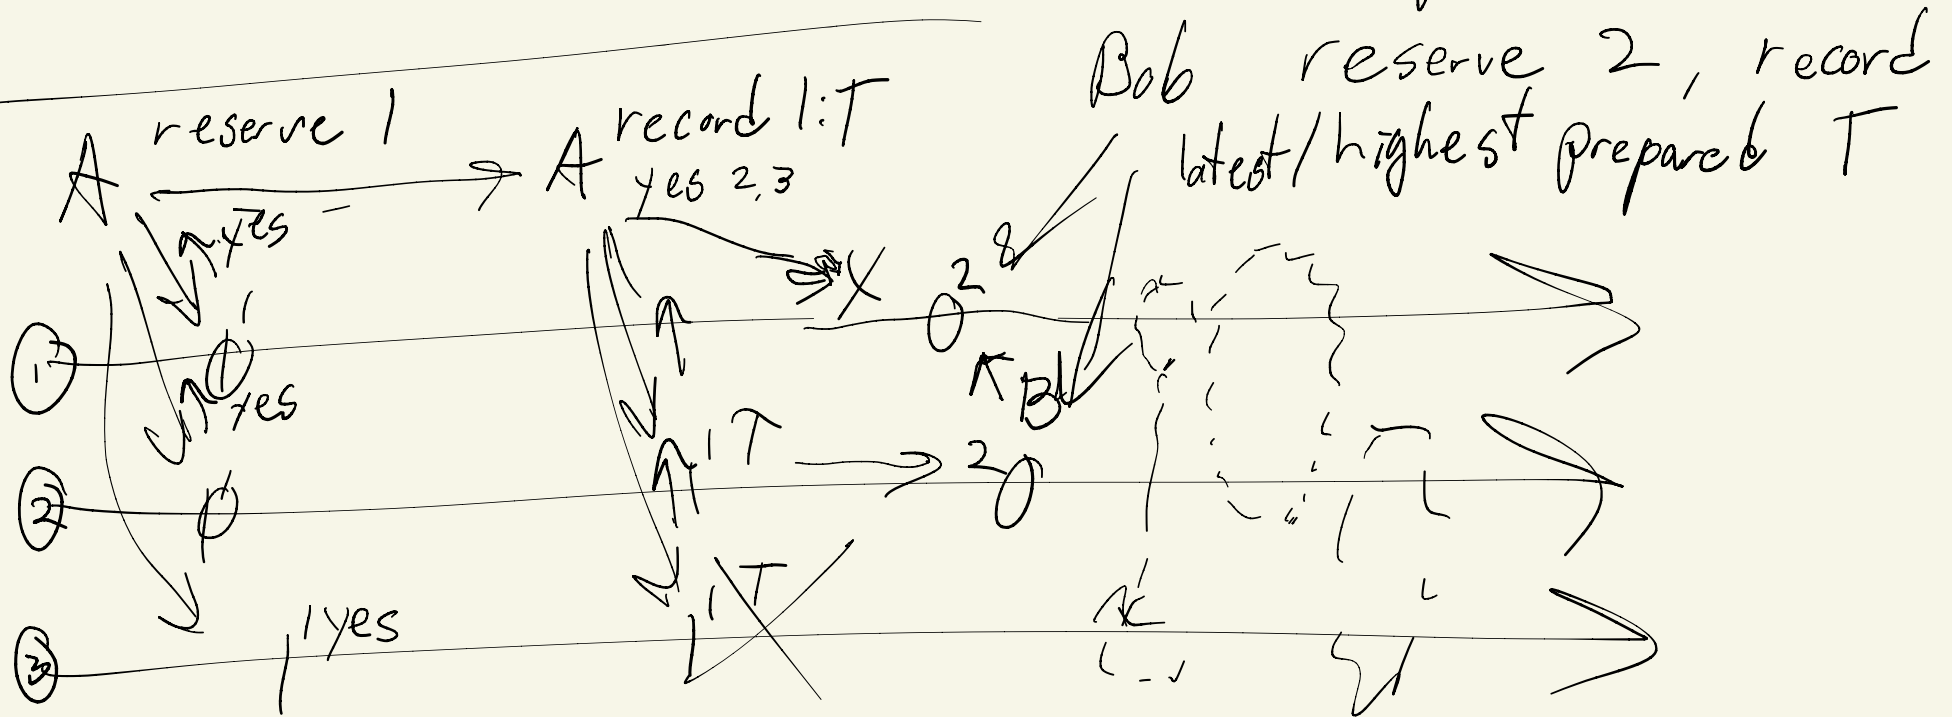 Bob reserve 2, record
latest/highest prepared T
A reserve 1
A record 1:T
yes 2,3
yes
X
2
1
1
B
yes
1T
2
2
1T
1 yes
3